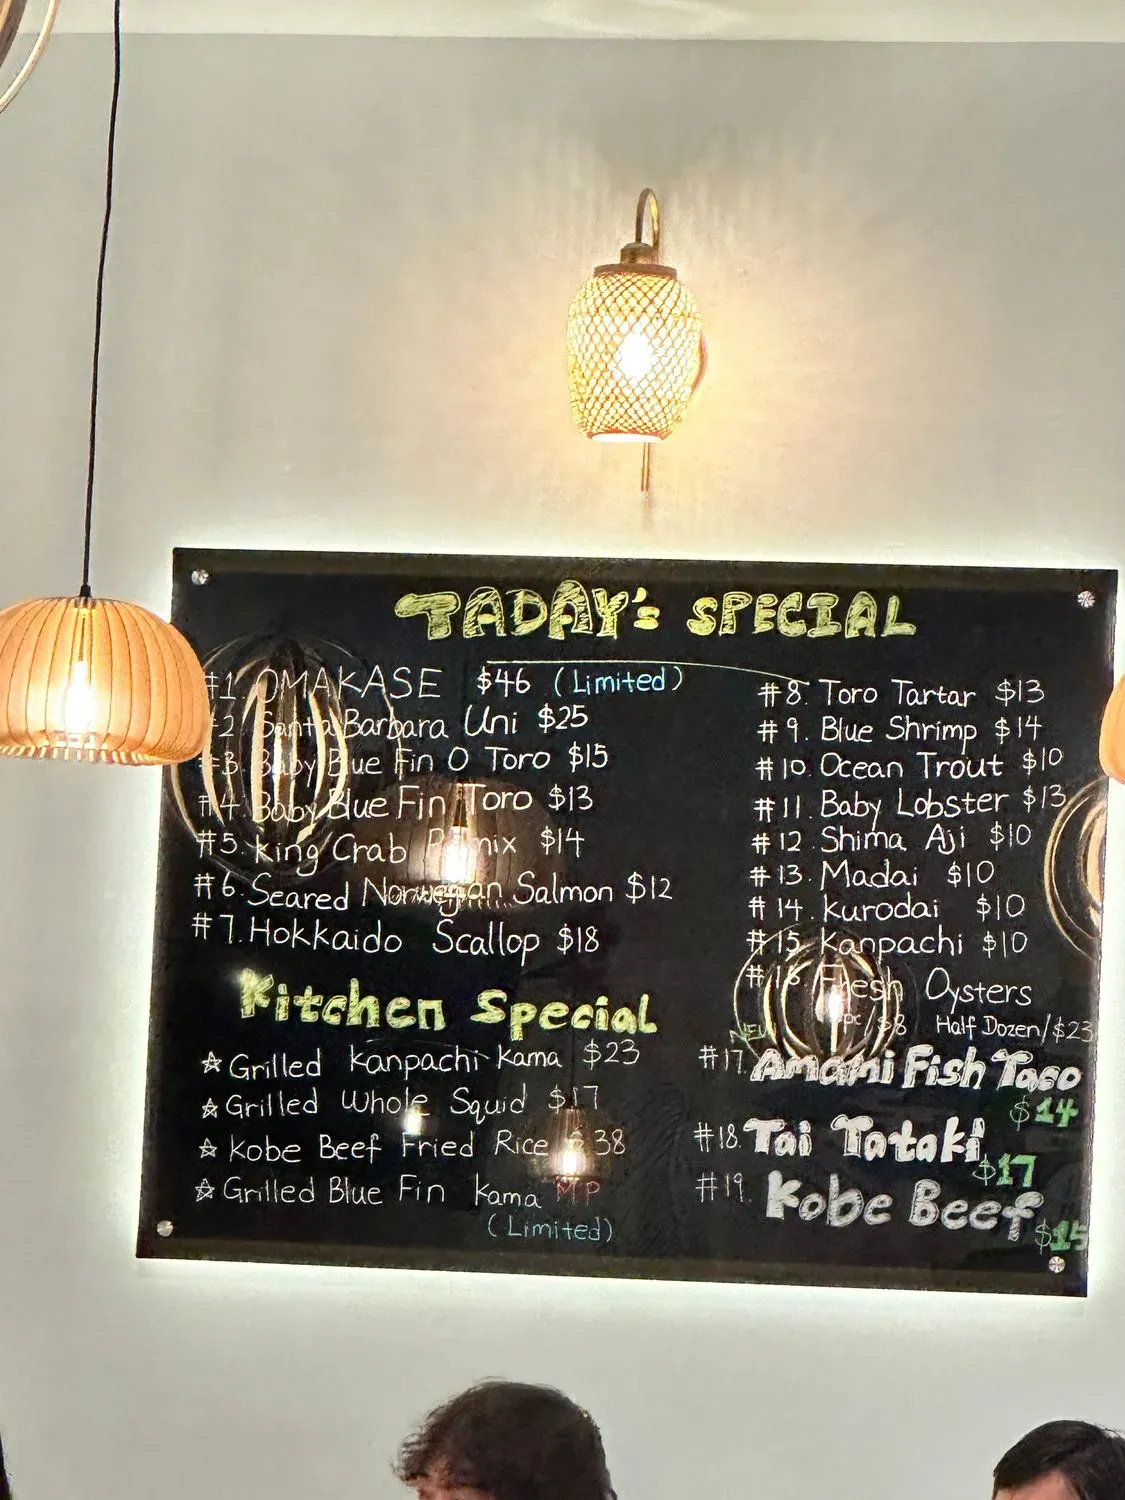 TADAY's SPECIAL
#1. OMAKASE $46 (Limited)
#2 Santa Barbara Uni $25
#3. Baby Blue Fin O Toro $15
#4. Baby Blue Fin Toro $13
#5. King Crab $14
#6. Seared Norwegian Salmon $12
#7. Hokkaido Scallop $18
Kitchen Special
☆ Grilled Kanpachi Kama $23
☆ Grilled Whole Squid $17
☆ Kobe Beef Fried Rice $38
☆ Grilled Blue Fin Kama MP
(Limited)
#8. Toro Tartar $13
#9. Blue Shrimp $14
#10. Ocean Trout $10
#11. Baby Lobster $13
#12. Shima Aji $10
#13. Madai $10
#14. Kurodai $10
#15. Kanpachi $10
#16 Fresh Oysters
pc/$8 Half Dozen/$23
NEW
#17. Amami Fish Taco
$14
#18. Tai Tataki
$17
#19. Kobe Beef
$15